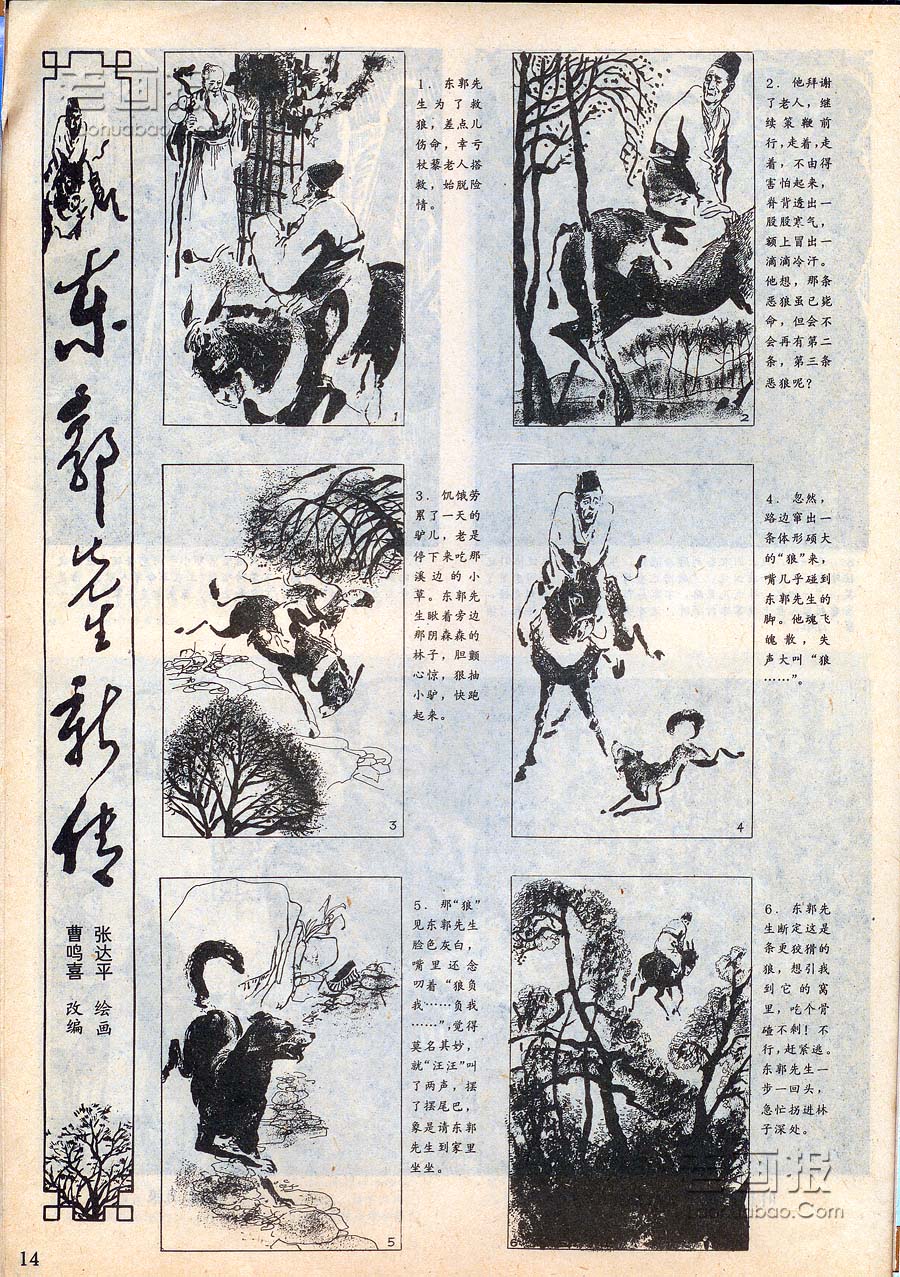 老画报
Laohuabao.Com
东郭先生新传
张达平 绘画
曹鸣喜 改编
1． 东郭先
生为了救
狼，差点儿
伤命，幸亏
杖藜老人搭
救，始脱险
情。
1
2． 他拜谢
了老人，继
续策鞭前
行，走着，走
着，不由得
害怕起来，
脊背透出一
股股寒气，
额上冒出一
滴滴冷汗。
他想，那条
恶狼虽已毙
命，但会不
会再有第二
条，第三条
恶狼呢？
2
3． 饥饿劳
累了一天的
驴儿，老是
停下来吃那
溪边的小
草。东郭先
生瞅着旁边
那阴森森的
林子，胆颤
心惊，狠抽
小驴，快跑
起来。
3
4． 忽然，
路边窜出一
条体形硕大
的“狼”来，
嘴几乎碰到
东郭先生的
脚。他魂飞
魄散，失
声大叫“狼
……”。
4
5． 那“狼”
见东郭先生
脸色灰白，
嘴里还念
叨着“狼负
我……负我
……”，觉得
莫名其妙，
就“汪汪”叫
了两声，摆
了摆尾巴，
象是请东郭
先生到家里
坐坐。
5
6． 东郭先
生断定这是
条更狡猾的
狼，想引我
到它的窝
里，吃个骨
碴不剩！不
行，赶紧逃。
东郭先生一
步一回头，
急忙拐进林
子深处。
6
老画报
Laohuabao.Com
14